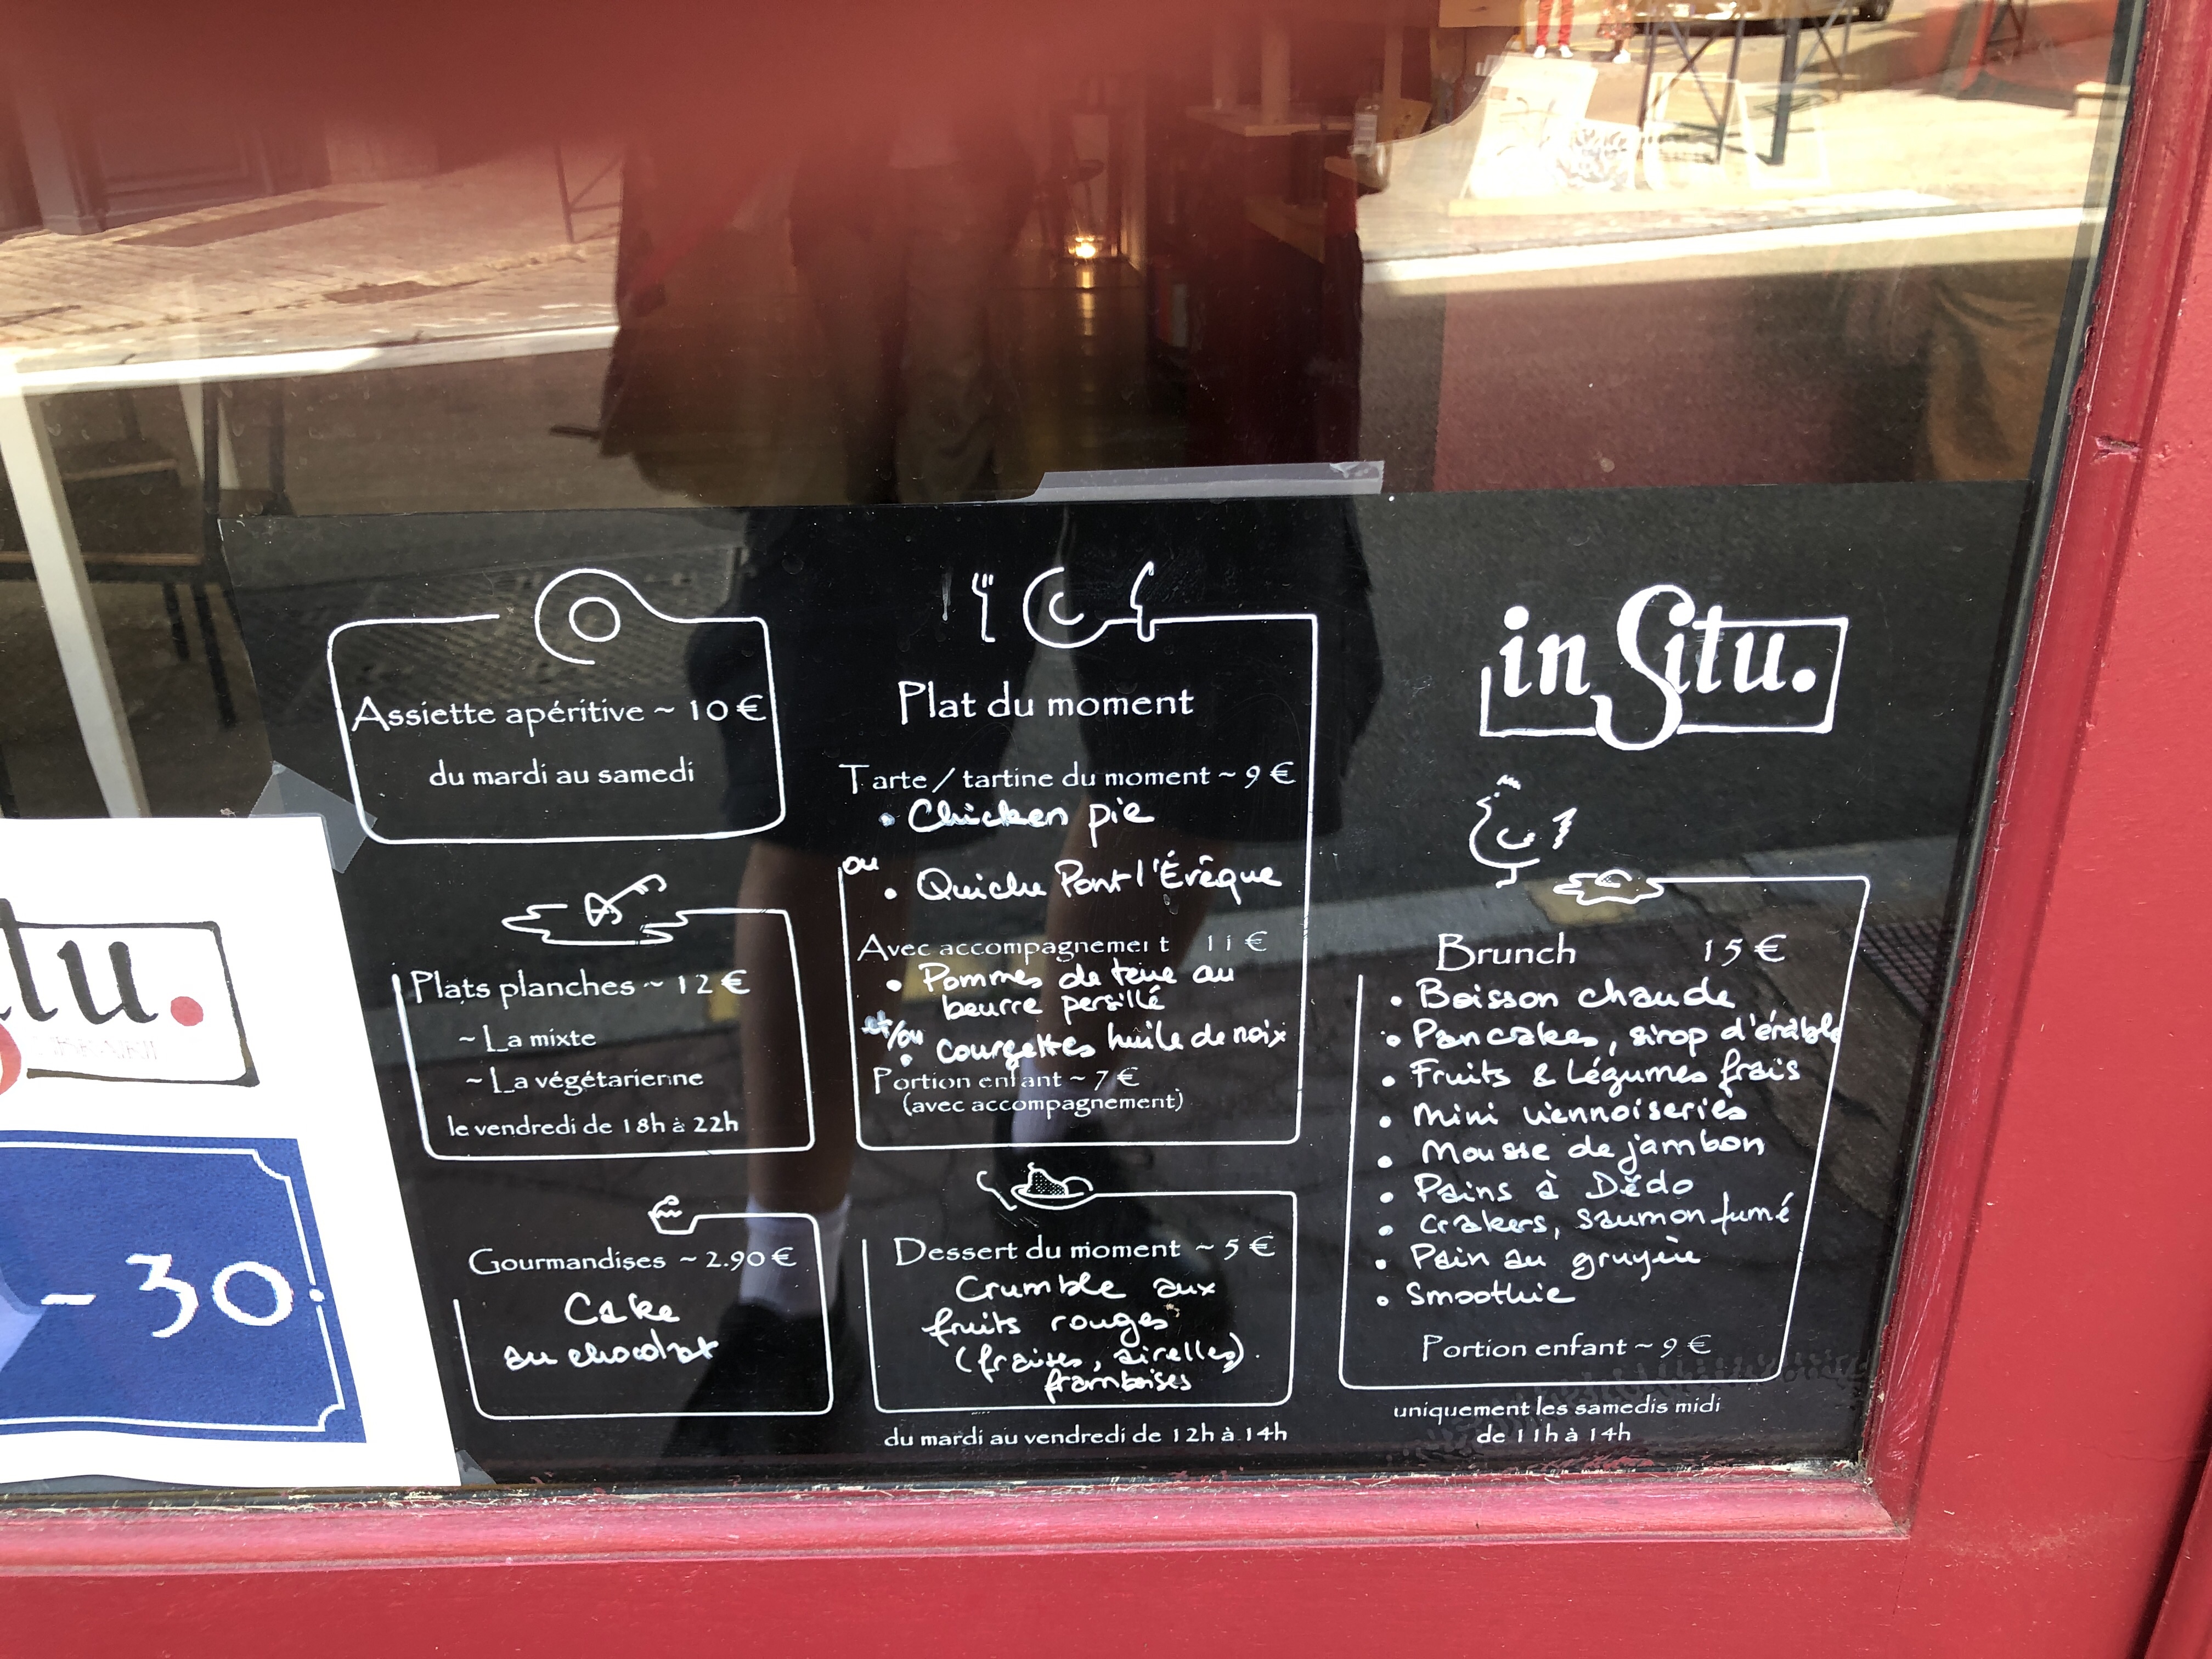 Assiette apéritive ~ 10 €
du mardi au samedi
Plats planches ~ 12 €
~ La mixte
~ La végétarienne
le vendredi de 18h à 22h
Gourmandises ~ 2.90 €
Cake
au chocolat
Plat du moment
Tarte / tartine du moment ~ 9 €
• Chicken pie
ou
• Quiche Pont l'Évêque
Avec accompagnement 11 €
• Pommes de terre au
beurre persillé
et/ou
• Courgettes huile de noix
Portion enfant ~ 7 €
(avec accompagnement)
Dessert du moment ~ 5 €
Crumble aux
fruits rouges
(fraises, airelles)
framboises
du mardi au vendredi de 12h à 14h
in Situ.
Brunch 15 €
• Boisson chaude
• Pancakes, sirop d'érable
• Fruits & Légumes frais
• Mini viennoiseries
• Mousse de jambon
• Pains à Dédo
• Crakers, saumon fumé
• Pain au gruyère
• Smoothie
Portion enfant ~ 9 €
uniquement les samedis midi
de 11h à 14h
tu.
~ 30